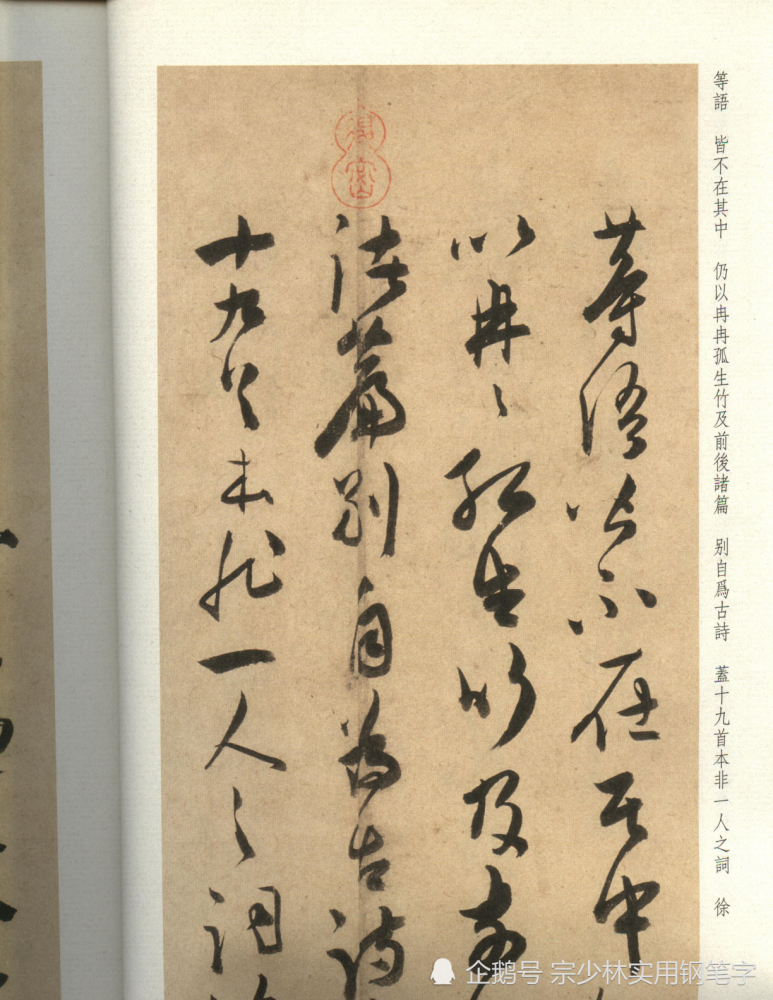 等語 皆不在其中 仍以冉冉孤生竹及前後諸篇 别自爲古詩 蓋十九首本非一人之詞 徐
等語皆不在其中
以冉〻孤生竹及前
諸篇别自為古詩
十九首本非一人之詞
企鹅号 宗少林实用钢笔字